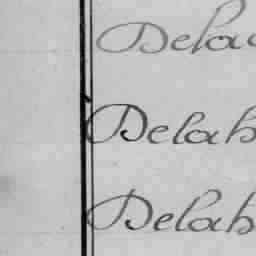 Delac
Delah
Delah